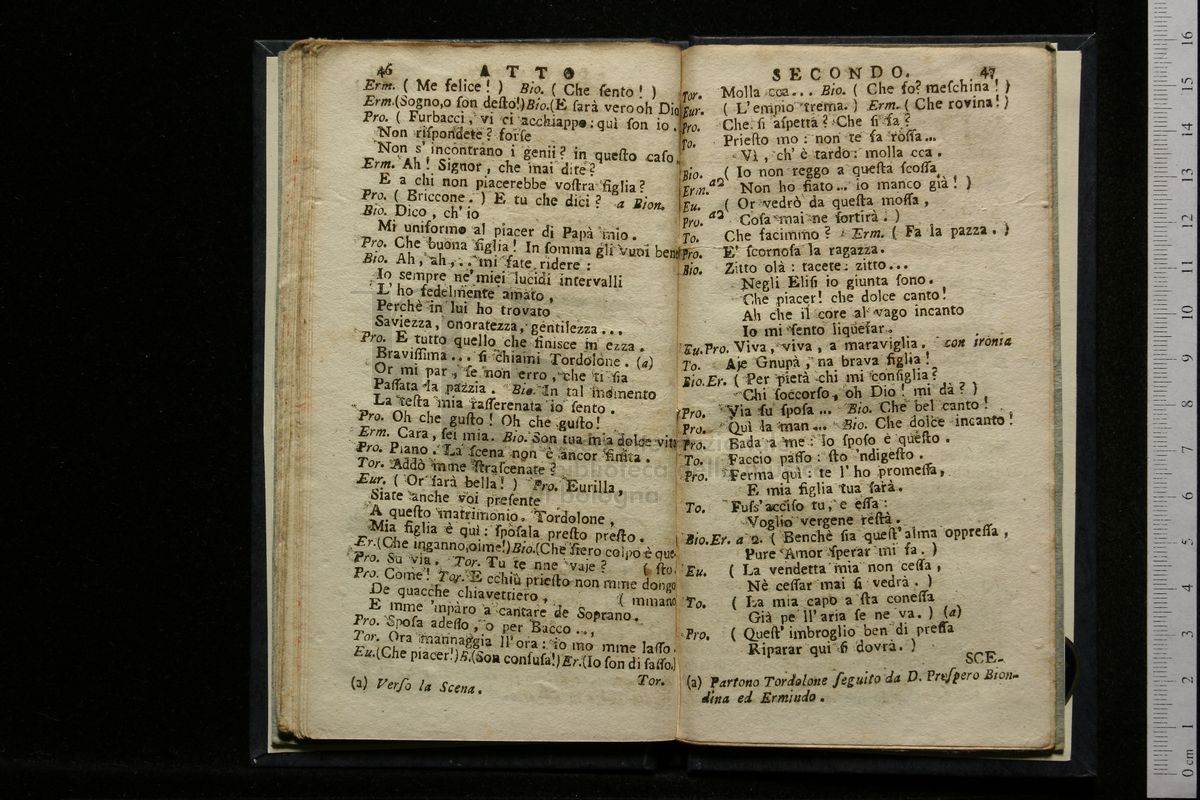 46 ATTO
Erm. ( Me felice! ) Bio. ( Che ſento! )
Erm.(Sogno,o ſon deſto!)Bio.(E ſarà vero oh Dio
Pro. ( Furbacci, vi ci acchiappo: quì ſon io.
Non riſpondete? forſe
Non s' incontrano i genii? in queſto caſo.
Erm. Ah! Signor, che mai dite?
E a chi non piacerebbe voſtra figlia?
Pro. ( Briccone. ) E tu che dici? a Bion.
Bio. Dico, ch' io
Mi uniformo al piacer di Papà mio.
Pro. Che buona figlia! In ſomma gli vuoi bene
Bio. Ah, ah, .. mi fate ridere:
Io ſempre ne' miei lucidi intervalli
L' ho fedelmente amato,
Perchè in lui ho trovato
Saviezza, onoratezza, gentilezza...
Pro. E tutto quello che finisce in ezza.
Braviſſima... ſi chiami Tordolone. (a)
Or mi par, ſe non erro, che ti ſia
Paſſata la pazzia. Bio. In tal momento
La teſta mia raſſerenata io ſento.
Pro. Oh che guſto! Oh che guſto!
Erm. Cara, ſei mia. Bio. Son tua mia dolce vita
Pro. Piano. La ſcena non è ancor finita.
Tor. Addò mme ſtraſcenate?
Eur. ( Or ſarà bella! ) Pro. Eurilla,
Siate anche voi preſente
A queſto matrimonio. Tordolone,
Mia figlia è quì: ſpoſala preſto preſto.
Er.(Che inganno,oimè!)Bio.(Che fiero colpo è que-
Pro. Su via. Tor. Tu te nne vaje? ( ſto.
Pro. Come! Tor. E cchiù prieſto non mme dongo
De quacche chiavettiero, ( mmano
E mme 'mparo a cantare de Soprano.
Pro. Spoſa adeſſo, o per Bacco...,
Tor. Ora mannaggia ll'ora: io mo mme laſſo.
Eu.(Che piacer!)B.(Son confuſa!)Er.(Io ſon di ſaſſo.)
Tor.
(a) Verſo la Scena.
SECONDO. 47
Tor. Molla cca... Bio. ( Che fo? meſchina! )
Eur. ( L'empio trema. ) Erm. ( Che rovina! )
Pro. Che ſi aſpetta? Che ſi fa?
To. Prieſto mo: non te fa roſſa...
Vì, ch' è tardo: molla cca.
Bio. ( Io non reggo a queſta ſcoſſa
Erm. a2 Non ho fiato... io manco già! )
Eu. ( Or vedrò da queſta moſſa,
Pro. a2 Coſa mai ne ſortirà. )
To. Che facimmo? Erm. ( Fa la pazza. )
Pro. E' ſcornoſa la ragazza.
Bio. Zitto olà: tacete: zitto...
Negli Eliſi io giunta ſono.
Che piacer! che dolce canto!
Ah che il core al vago incanto
Io mi ſento liquefar.
Eu.Pro. Viva, viva, a maraviglia. con ironia
To. Aje Gnupà, 'na brava figlia!
Bio.Er. ( Per pietà chi mi conſiglia?
Chi ſoccorſo, oh Dio! mi dà? )
Pro. Via ſu ſpoſa... Bio. Che bel canto!
Pro. Quì la man... Bio. Che dolce incanto!
Pro. Bada a me: lo ſpoſo è queſto.
To. Faccio paſſo: ſto 'ndigeſto.
Pro. Ferma quì: te l' ho promeſſa,
E mia figlia tua ſarà.
To. Fuſs' acciſo tu, e eſſa:
Voglio vergene reſtà.
Bio.Er. a 2. ( Benchè ſia queſt' alma oppreſſa,
Pure Amor ſperar mi fa. )
Eu. ( La vendetta mia non ceſſa,
Nè ceſſar mai ſi vedrà. )
To. ( La mia capo a ſta coneſſa
Già pe ll'aria ſe ne va. ) (a)
Pro. ( Queſt' imbroglio ben di preſſa
Riparar quì ſi dovrà. )
SCE-
(a) Partono Tordolone ſeguito da D. Proſpero Bion-
dina ed Ermindo.